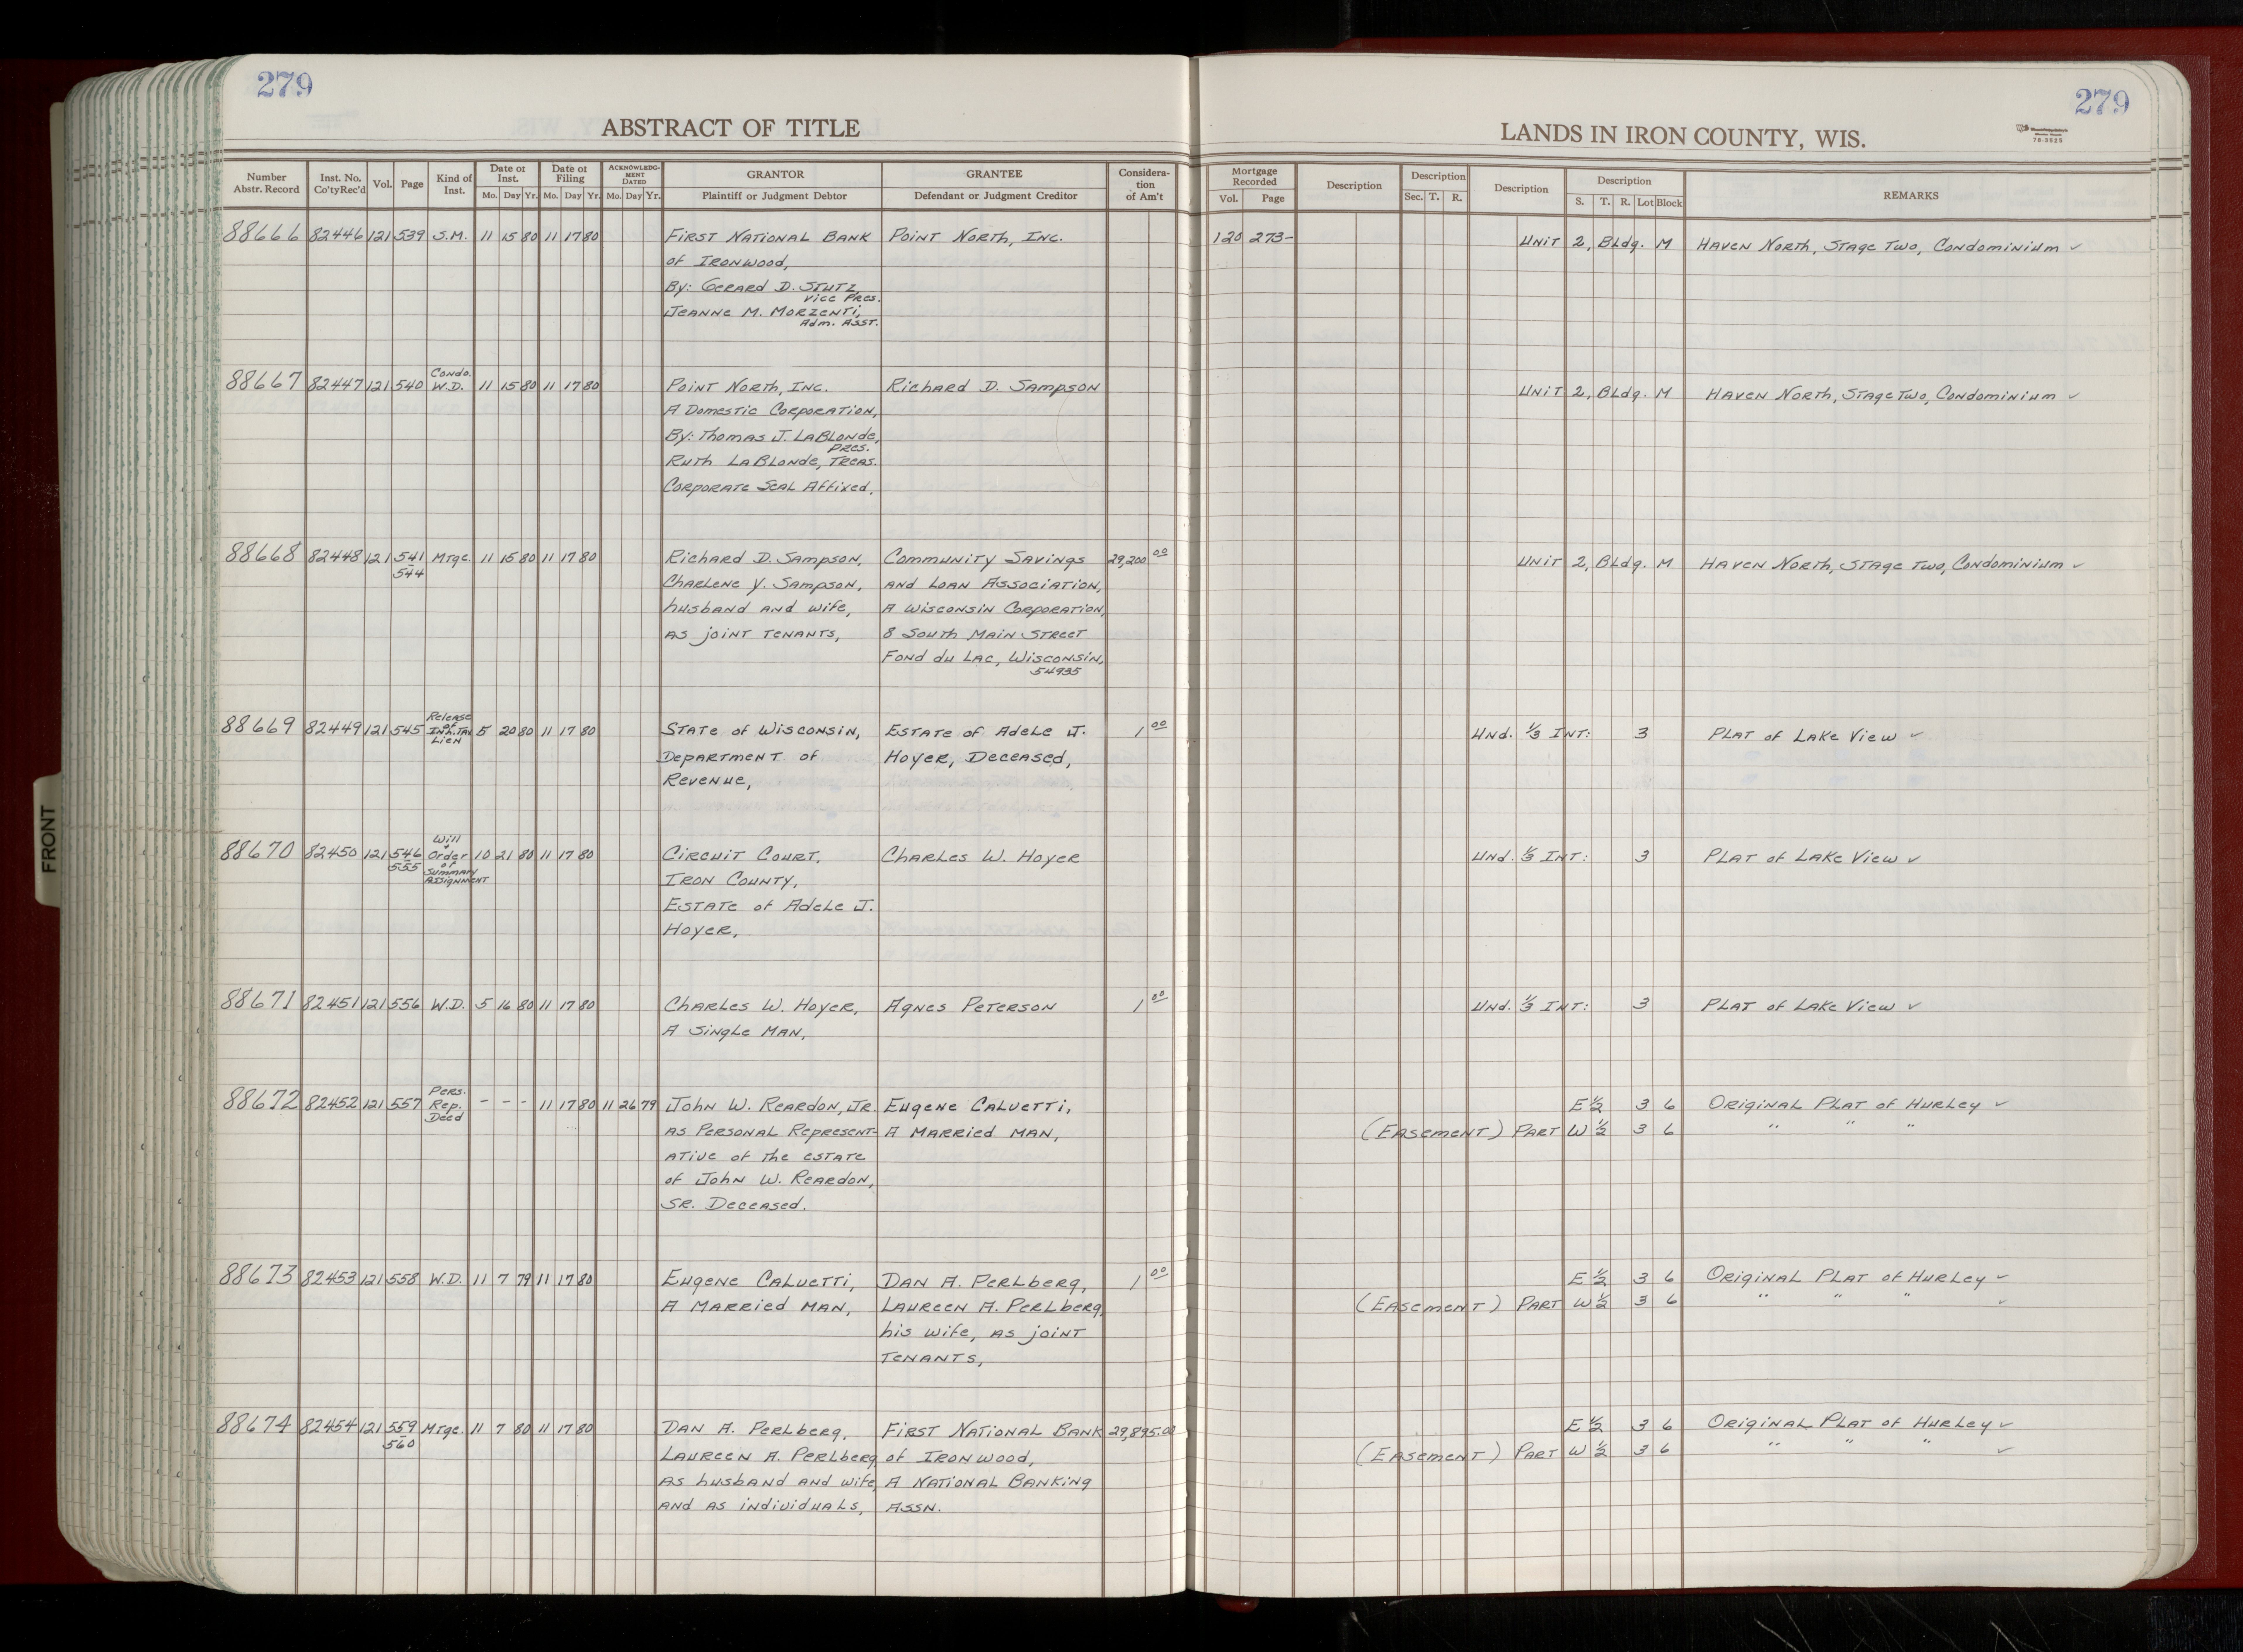 279
279
ABSTRACT OF TITLE
LANDS IN IRON COUNTY, WIS.
Number Abstr. Record
Inst. No. Co'ty Rec'd
Vol.
Page
Kind of Inst.
Date of Inst.
Mo. Day Yr.
Date of Filing
Mo. Day Yr.
ACKNOWLEDGMENT DATED
Mo. Day Yr.
GRANTOR
Plaintiff or Judgment Debtor
GRANTEE
Defendant or Judgment Creditor
Consideration of Am't
Mortgage Recorded
Vol. Page
Description
Description
Sec. T. R.
Description
Description
S. T. R. Lot Block
REMARKS
88666 82446 121 539 S.M. 11 15 80 11 17 80 First National Bank Point North, Inc. 120 273- Unit 2, Bldg. M Haven North, Stage Two, Condominium ✓
of Ironwood,
By: Gerard D. Stutz,
Vice Pres.
Jeanne M. Morzenti,
Adm. Asst.
88667 82447 121 540 Condo. W.D. 11 15 80 11 17 80 Point North, Inc. Richard D. Sampson Unit 2, Bldg. M Haven North, Stage Two, Condominium ✓
A Domestic Corporation,
By: Thomas J. LaBlonde,
Pres.
Ruth LaBlonde, Treas.
Corporate Seal Affixed.
88668 82448 121 541-544 Mtge. 11 15 80 11 17 80 Richard D. Sampson, Community Savings 29,200 00 Unit 2, Bldg. M Haven North, Stage Two, Condominium ✓
Charlene Y. Sampson, and Loan Association,
husband and wife, A Wisconsin Corporation,
as joint tenants, 8 South Main Street
Fond du Lac, Wisconsin,
54935
88669 82449 121 545 Release of Inh. Tax Lien 5 20 80 11 17 80 State of Wisconsin, Estate of Adele J. 1 00 Und. 1/3 Int: 3 Plat of Lake View ✓
Department of Hoyer, Deceased,
Revenue,
88670 82450 121 546-555 Will & Order of Summary Assignment 10 21 80 11 17 80 Circuit Court, Charles W. Hoyer Und. 1/3 Int: 3 Plat of Lake View ✓
Iron County,
Estate of Adele J.
Hoyer,
88671 82451 121 556 W.D. 5 16 80 11 17 80 Charles W. Hoyer, Agnes Peterson 1 00 Und. 1/3 Int: 3 Plat of Lake View ✓
A Single Man,
88672 82452 121 557 Pers. Rep. Deed - - - 11 17 80 11 26 79 John W. Reardon, Jr. Eugene Calvetti, E 1/2 3 6 Original Plat of Hurley ✓
as Personal Represent- A Married Man, (Easement) Part W 1/2 3 6 " " "
ative of the estate
of John W. Reardon,
Sr. Deceased.
88673 82453 121 558 W.D. 11 7 79 11 17 80 Eugene Calvetti, Dan A. Perlberg, 1 00 E 1/2 3 6 Original Plat of Hurley ✓
A Married Man, Laureen A. Perlberg, (Easement) Part W 1/2 3 6 " " " ✓
his wife, as joint
tenants,
88674 82454 121 559-560 Mtge. 11 7 80 11 17 80 Dan A. Perlberg, First National Bank 29,895.00 E 1/2 3 6 Original Plat of Hurley ✓
Laureen A. Perlberg of Ironwood, (Easement) Part W 1/2 3 6 " " " ✓
as husband and wife, A National Banking
and as individuals, Assn.
FRONT